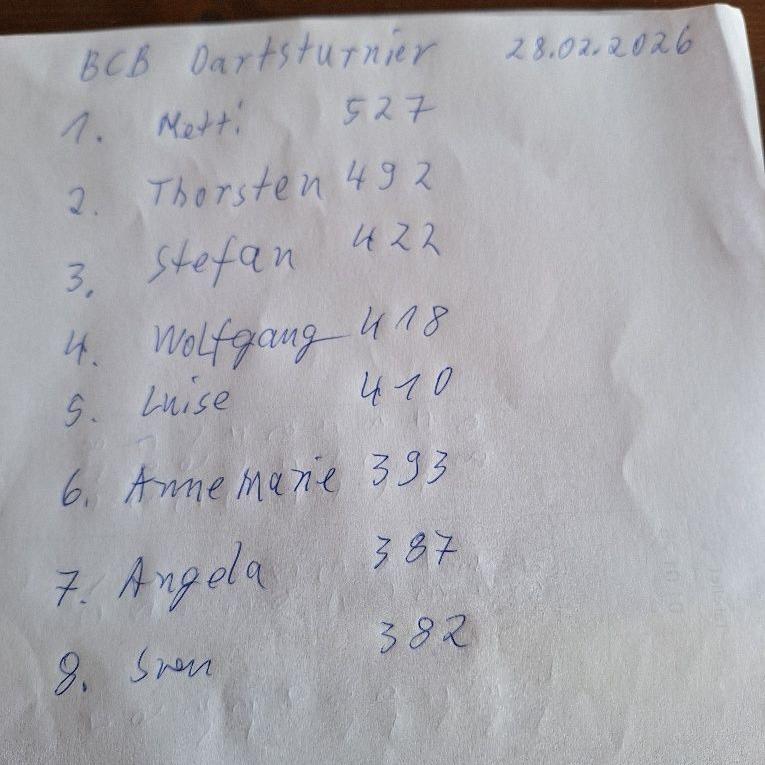 BCB Dartsturnier 28.02.2026
1. Metti 527
2. Thorsten 492
3. Stefan 422
4. Wolfgang 418
5. Luise 410
6. Annemarie 393
7. Angela 387
8. Sven 382